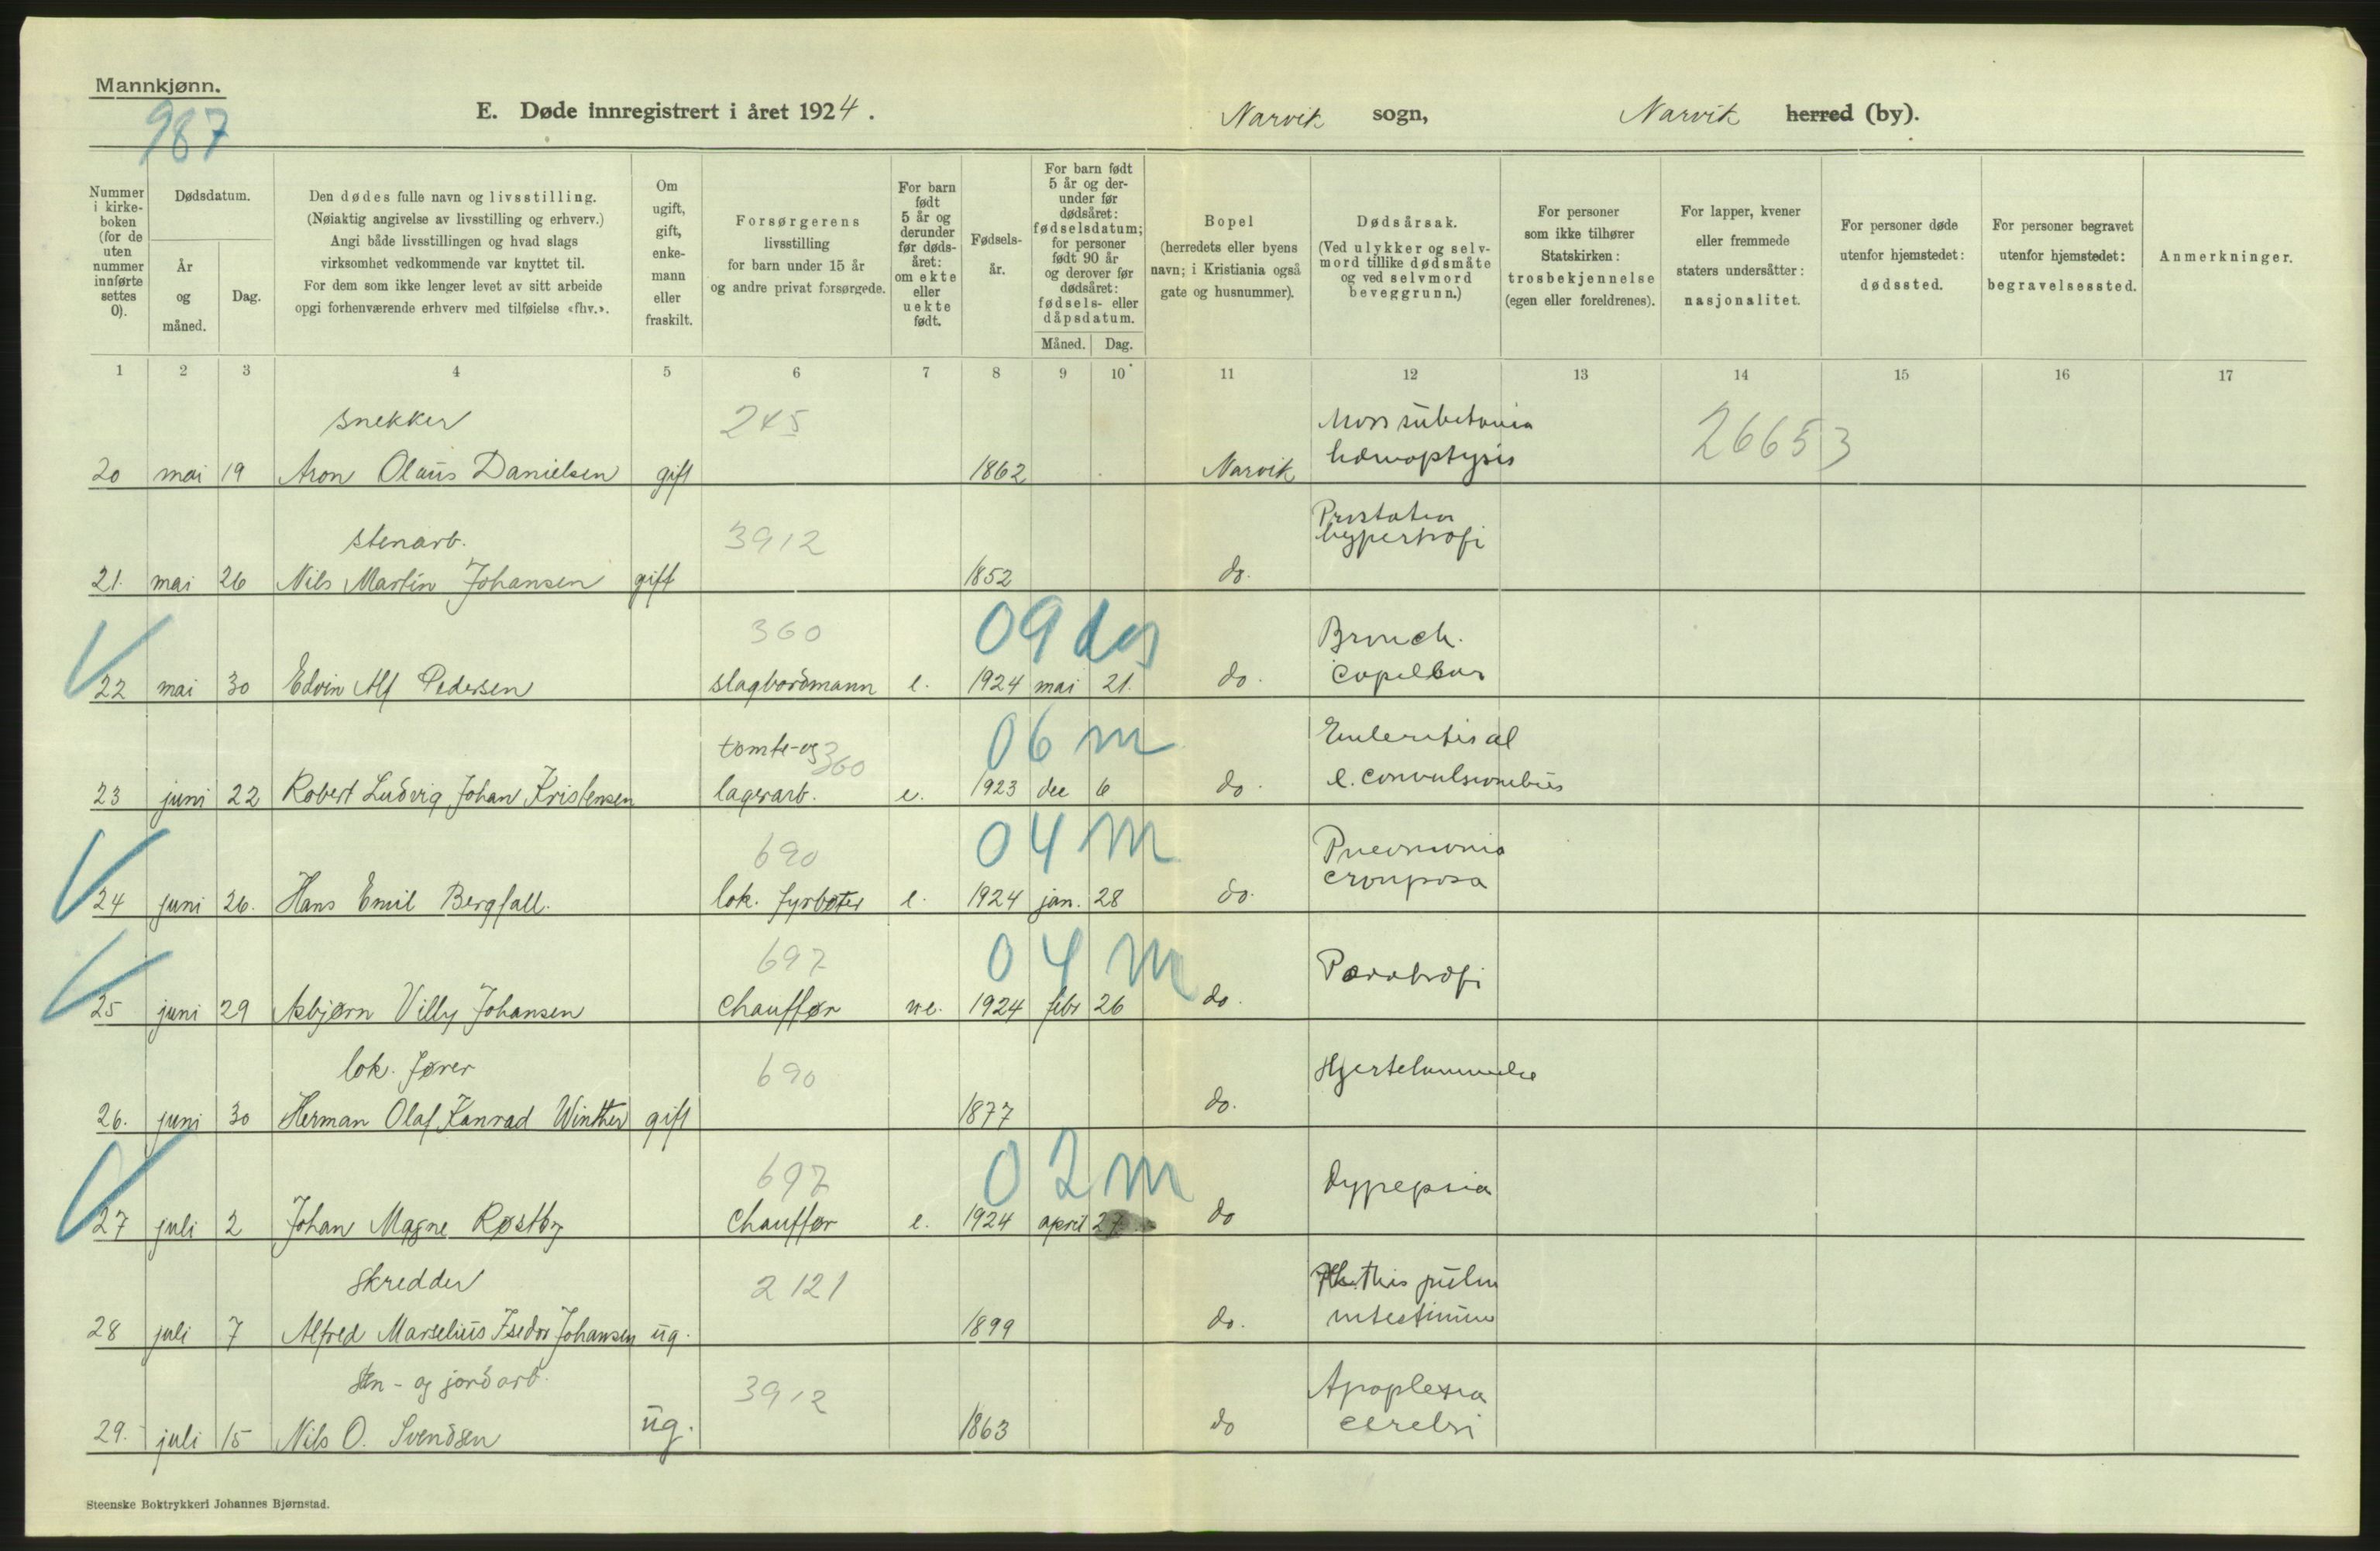 Mannkjønn.
987
E. Døde innregistrert i året 1924.
Narvik sogn,
Narvik herred (by).
Nummer i kirke-boken (for de uten nummer innførte settes 0).
Dødsdatum.
År og måned.
Dag.
Den dødes fulle navn og livsstilling.
(Nøiaktig angivelse av livsstilling og erhverv.)
Angi både livsstillingen og hvad slags
virksomhet vedkommende var knyttet til.
For dem som ikke lenger levet av sitt arbeide
opgi forhenværende erhverv med tilføielse «fhv.».
Om ugift, gift, enke-mann eller fraskilt.
Forsørgerens
livsstilling
for barn under 15 år
og andre privat forsørgede.
For barn født 5 år og derunder før døds-året: om ekte eller uekte født.
Fødsels-år.
For barn født 5 år og der-under før dødsåret: fødselsdatum; for personer født 90 år og derover før dødsåret: fødsels- eller dåpsdatum.
Måned. Dag.
Bopel
(herredets eller byens
navn; i Kristiania også
gate og husnummer).
Dødsårsak.
(Ved ulykker og selv-
mord tillike dødsmåte
og ved selvmord
beveggrunn.)
For personer
som ikke tilhører
Statskirken:
trosbekjennelse
(egen eller foreldrenes).
For lapper, kvener
eller fremmede
staters undersåtter:
nasjonalitet.
For personer døde
utenfor hjemstedet:
dødssted.
For personer begravet
utenfor hjemstedet:
begravelsessted.
Anmerkninger.
1 2 3 4 5 6 7 8 9 10 11 12 13 14 15 16 17
snekker 245 Mors subitanea 26653
20 mai 19 Aron Olaus Danielsen gift 1862 Narvik hæmoptysis
stenarb. 3912 Prostata
hypertrofi
21. mai 26 Nils Martin Johansen gift 1852 do.
360 09 das Bronch.
22 mai 30 Edvin Alf Pedersen slagbordmann e. 1924 mai 21. do. capillar
tomte-og 360 06 m
23 juni 22 Robert Ludvig Johan Kristensen lagerarb. e. 1923 dec 6 do. c. convulsionibus
690 04 m Pneumonia
24 juni 26. Hans Emil Bergfall. lok. fyrbøter e. 1924 jan. 28 do. crouposa
697 04 m
25 juni 29 Asbjørn Villy Johansen Chauffør ue. 1924 febr 26 do.
lok. fører 690 Hjertelammelse
26. juni 30 Herman Olaf Konrad Winther gift 1877 do.
697 02 m Dyspepsia
27 juli 2 Johan Magne Røstby Chauffør e. 1924 april 27. do
Skredder 2121 pulm
28 juli 7 Alfred Marselius Isedor Johansen ug. 1899 do.
Sten- og jordarb. 3912 Apoplexia
29. juli 15 Nils O. Svendsen ug. 1863 do cerebri
Steenske Boktrykkeri Johannes Bjørnstad.